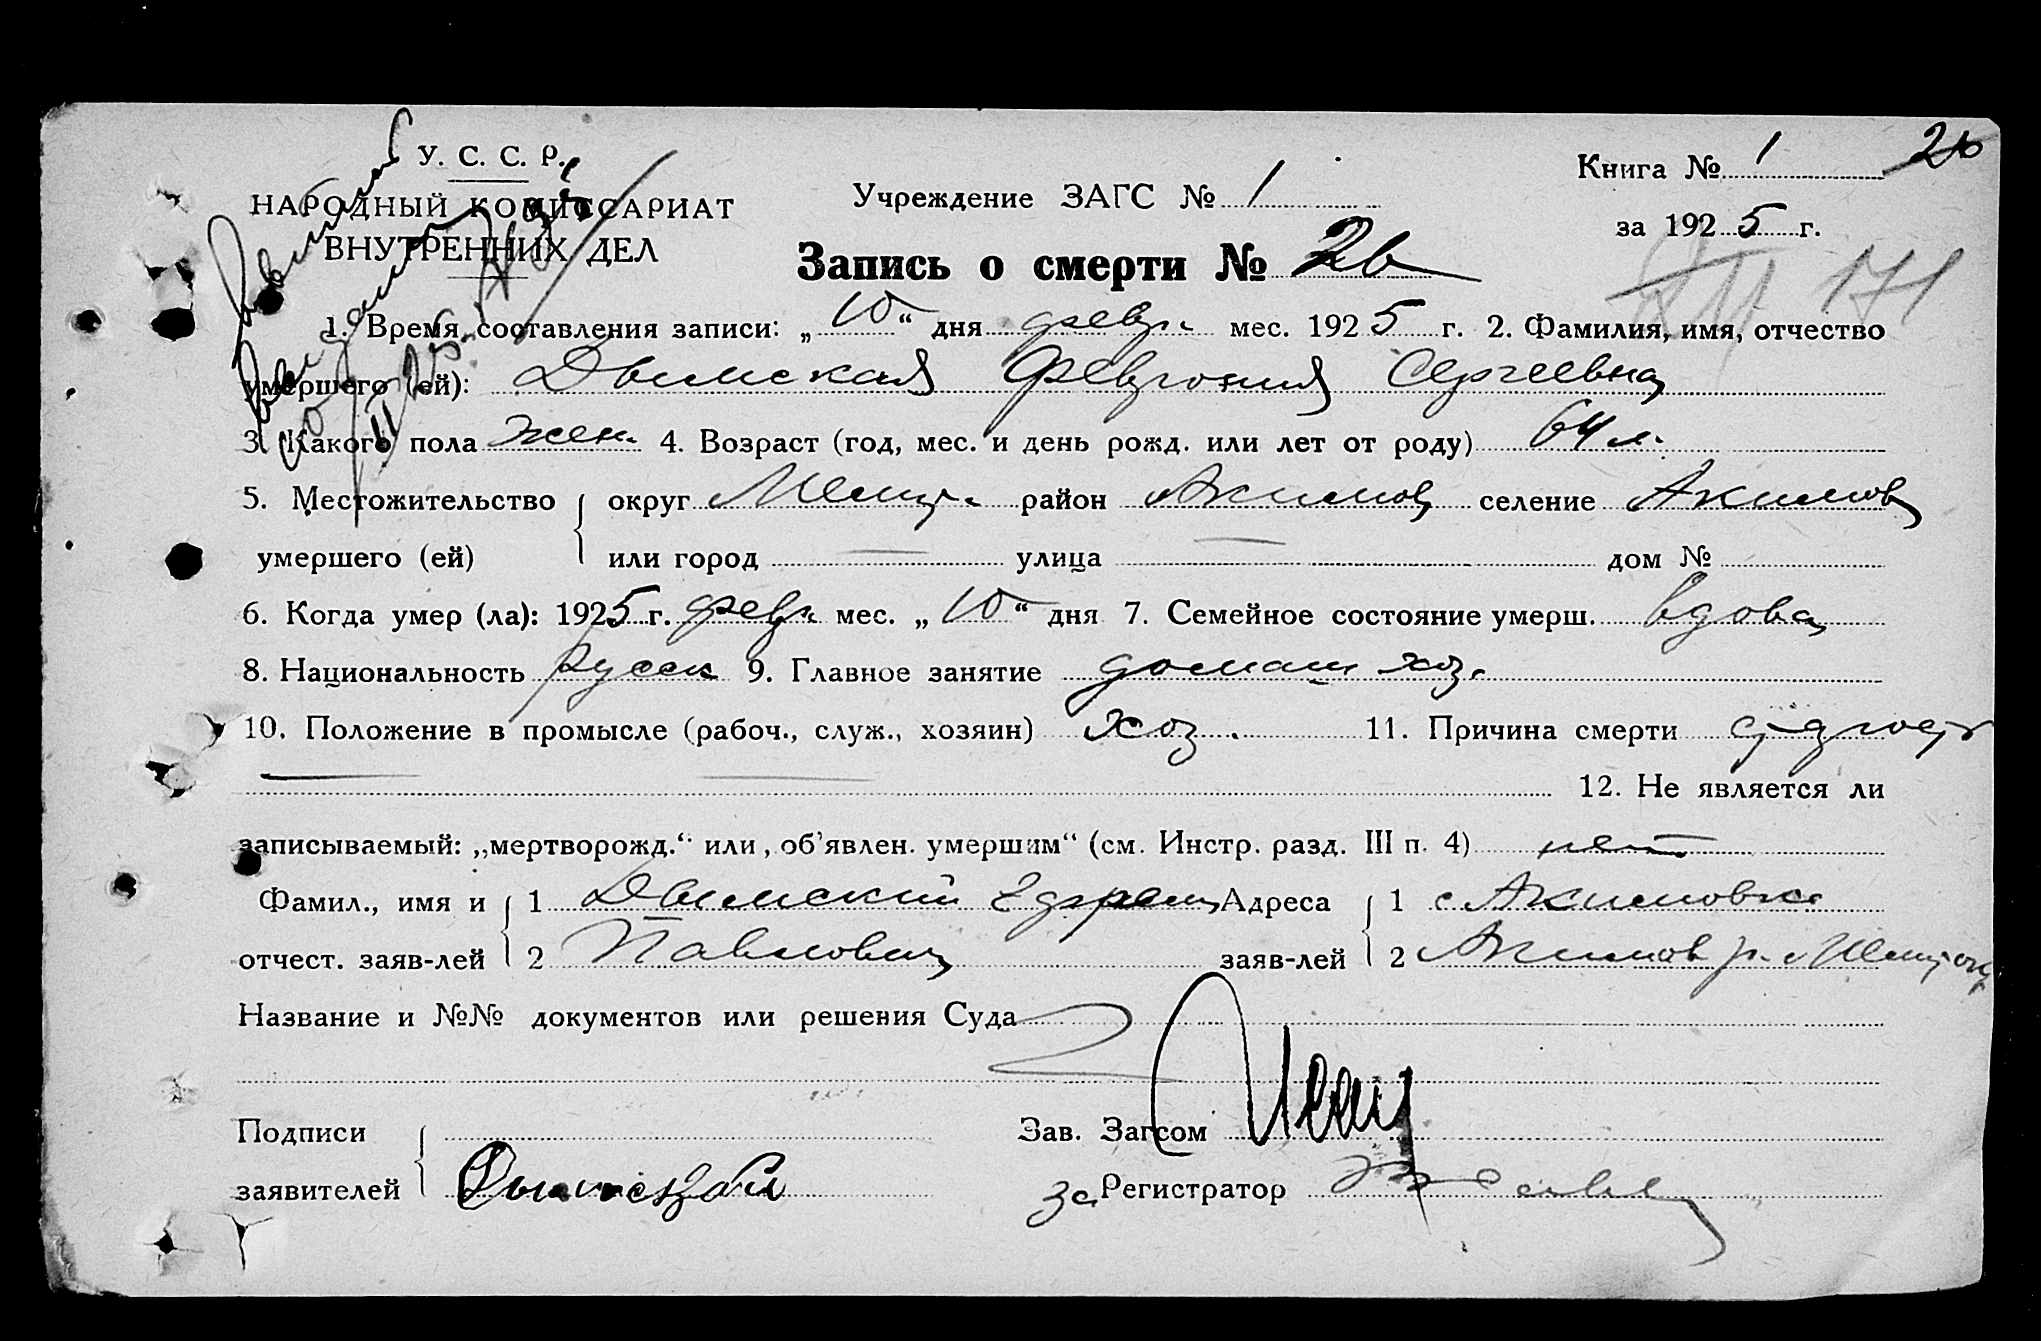 У. С. С. Р.
НАРОДНЫЙ КОМИССАРИАТ
ВНУТРЕННИХ ДЕЛ
Учреждение ЗАГС № 1
Книга № 1 26
за 1925 г.
Запись о смерти № 26
171
1. Время составления записи: „10“ дня февр. мес. 1925 г. 2. Фамилия, имя, отчество
умершего (ей): Дымская Феврония Сергеевна
3. Какого пола жен. 4. Возраст (год, мес. и день рожд. или лет от роду) 64 л.
5. Местожительство округ Мелит. район Акимов селение Акимов
умершего (ей) или город — улица — дом №
6. Когда умер (ла): 1925 г. февр мес. „10“ дня 7. Семейное состояние умерш. вдова
8. Национальность русск 9. Главное занятие домаш хоз.
10. Положение в промысле (рабоч., служ., хозяин) хоз. 11. Причина смерти
12. Не является ли
записываемый: „мертворожд.“ или „об'явлен. умершим“ (см. Инстр. разд. III п. 4) нет
Фамил., имя и 1 Дымский Ефрем Адреса 1 с Акимовка
отчест. заяв-лей 2 Павлович заяв-лей 2 Акимов р. Мелит ок
Название и №№ документов или решения Суда
Подписи Зав. Загсом
заявителей за Регистратор